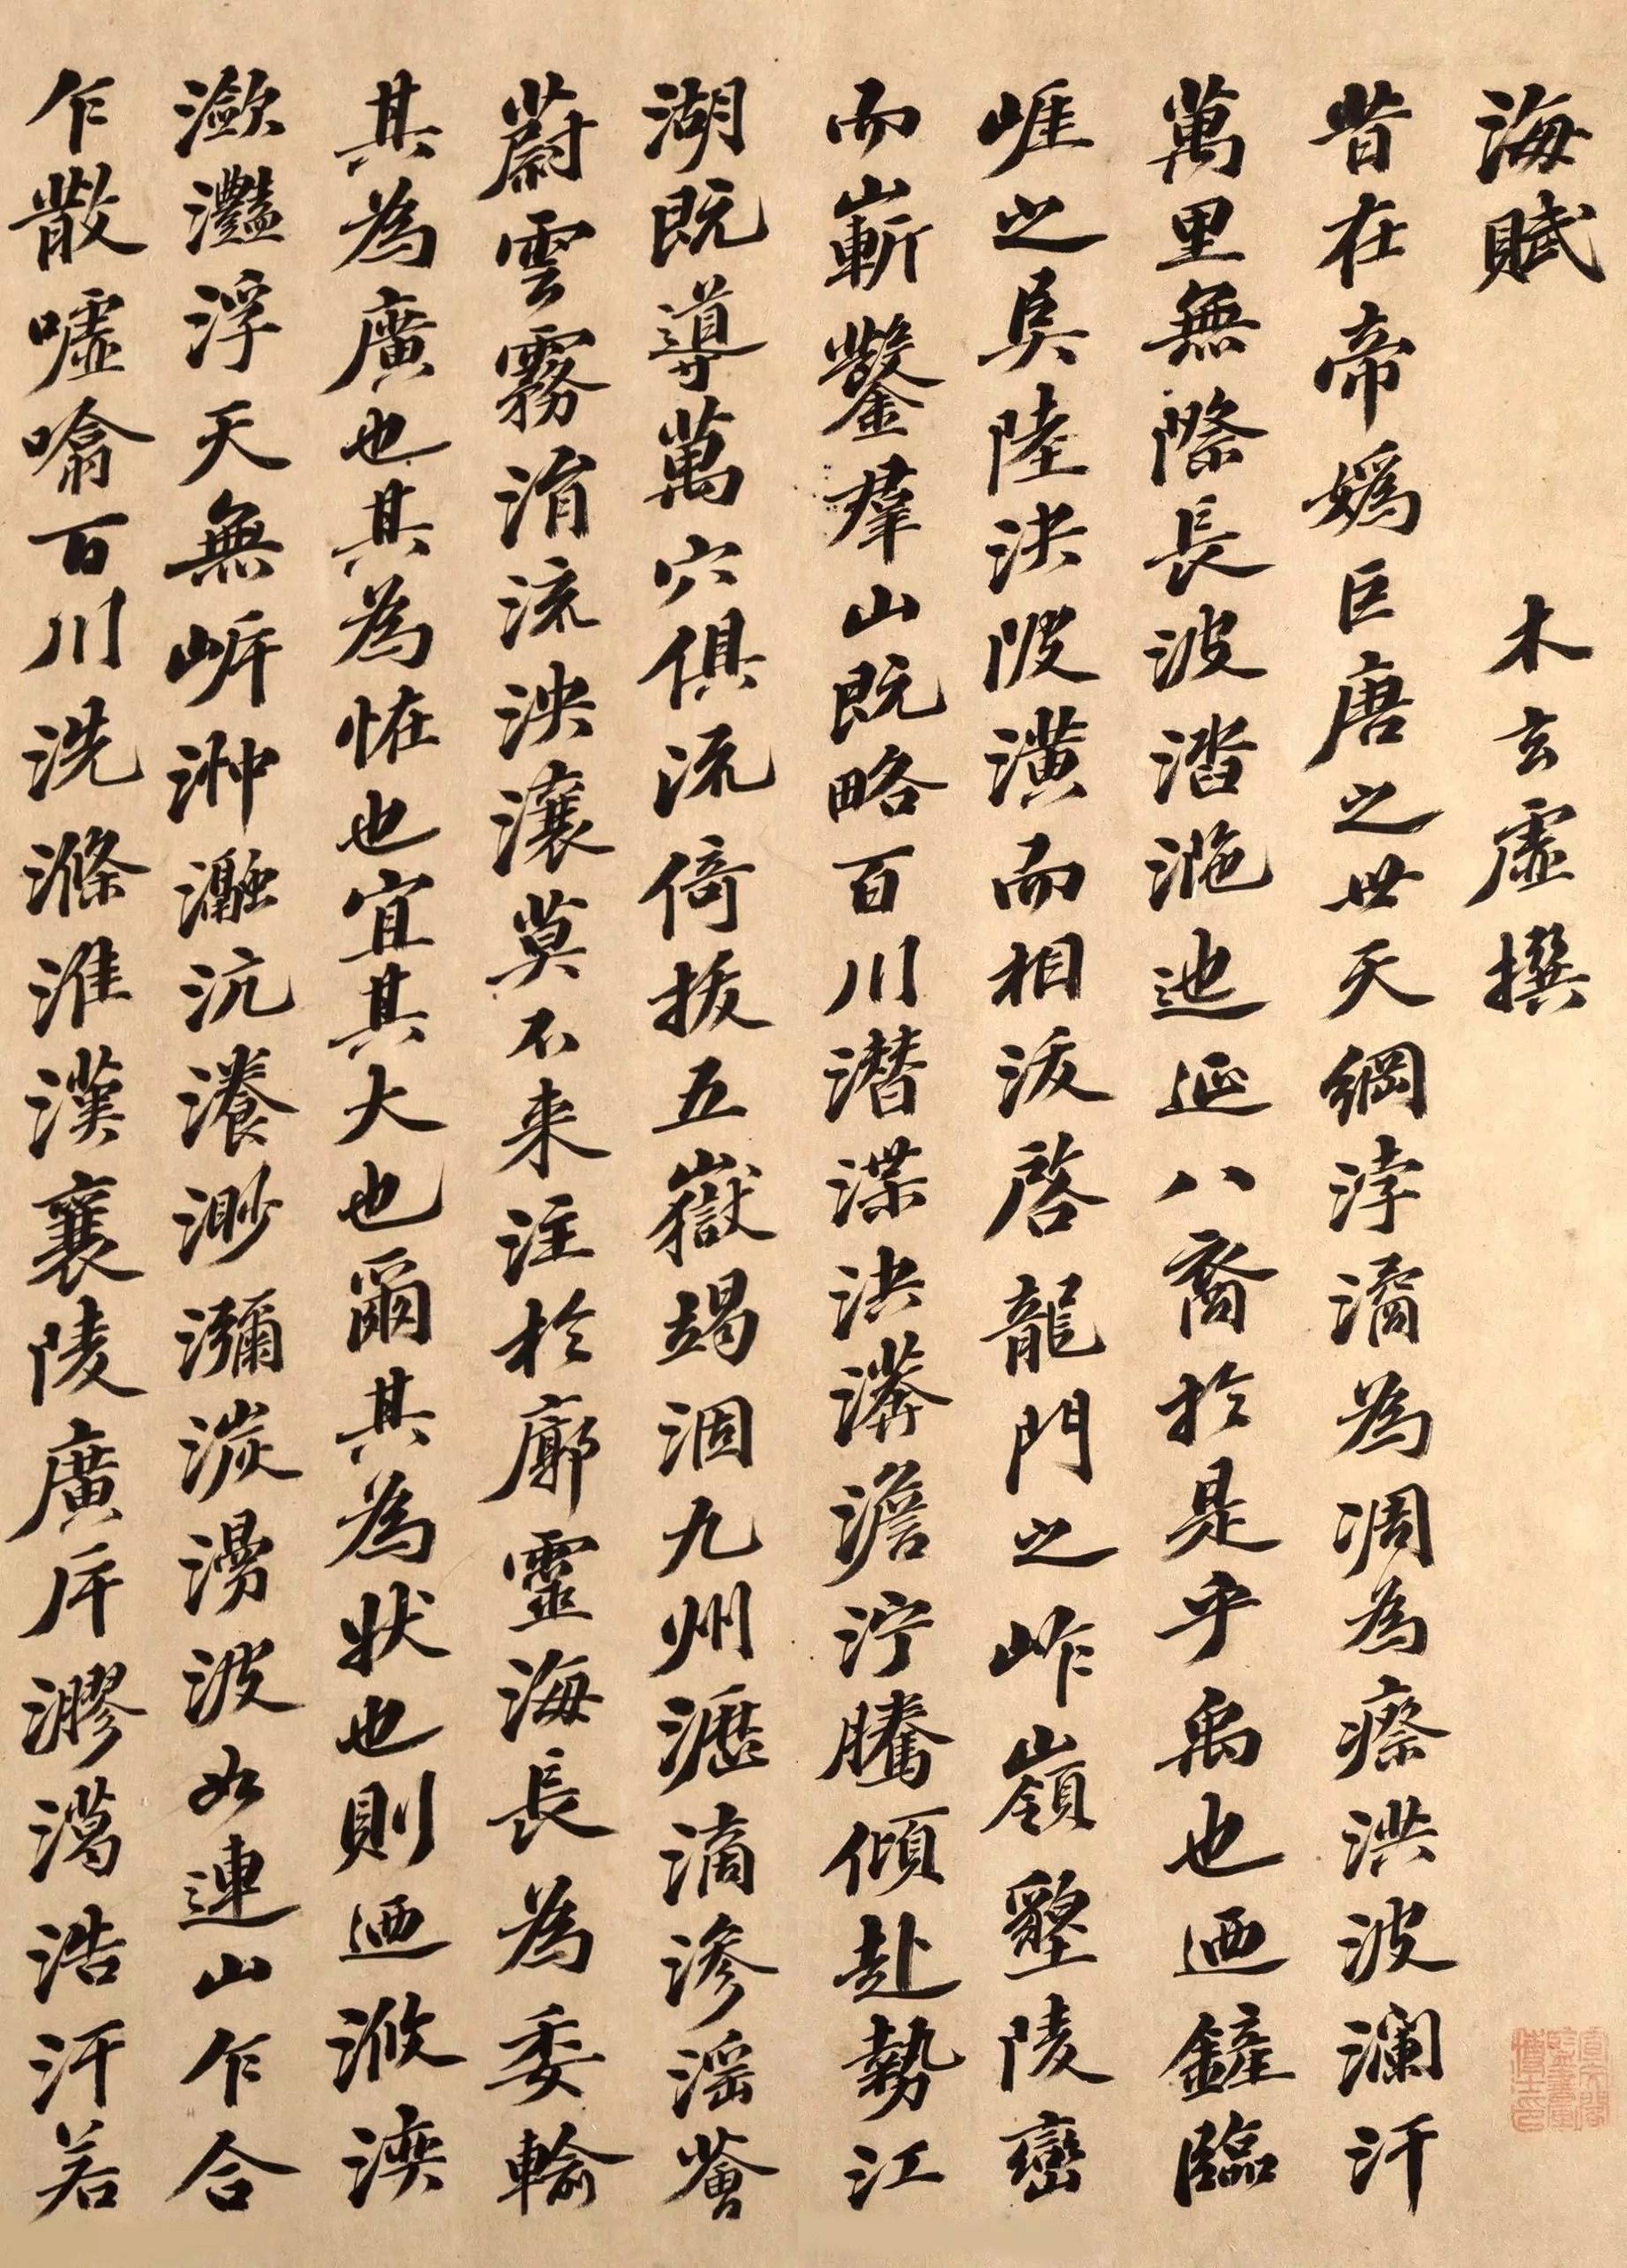 海賦 木玄虛撰
昔在帝媯巨唐之世天綱浡潏為凋為瘵洪波瀾汗
萬里無際長波涾㴰迆涎八裔於是乎禹也迺鏟臨
崕之阜陸決陂潢而相沷啓龍門之岝嶺墾陵巒
而嶄鑿群山既略百川潛渫泱漭澹泞騰傾赴勢江
湖既導萬穴俱流掎拔五嶽竭涸九州瀝滴滲淫薈
蔚雲霧涓流泱瀼莫不来注於廓靈海長為委輸
其為廣也其為恠也宜其大也爾其為狀也則迺浟湙
瀲灩浮天無岸沖瀜沆瀁渺瀰湠漫波如連山乍合
乍散噓噏百川洗滌淮漢襄陵廣斥㵧㵧浩汗若